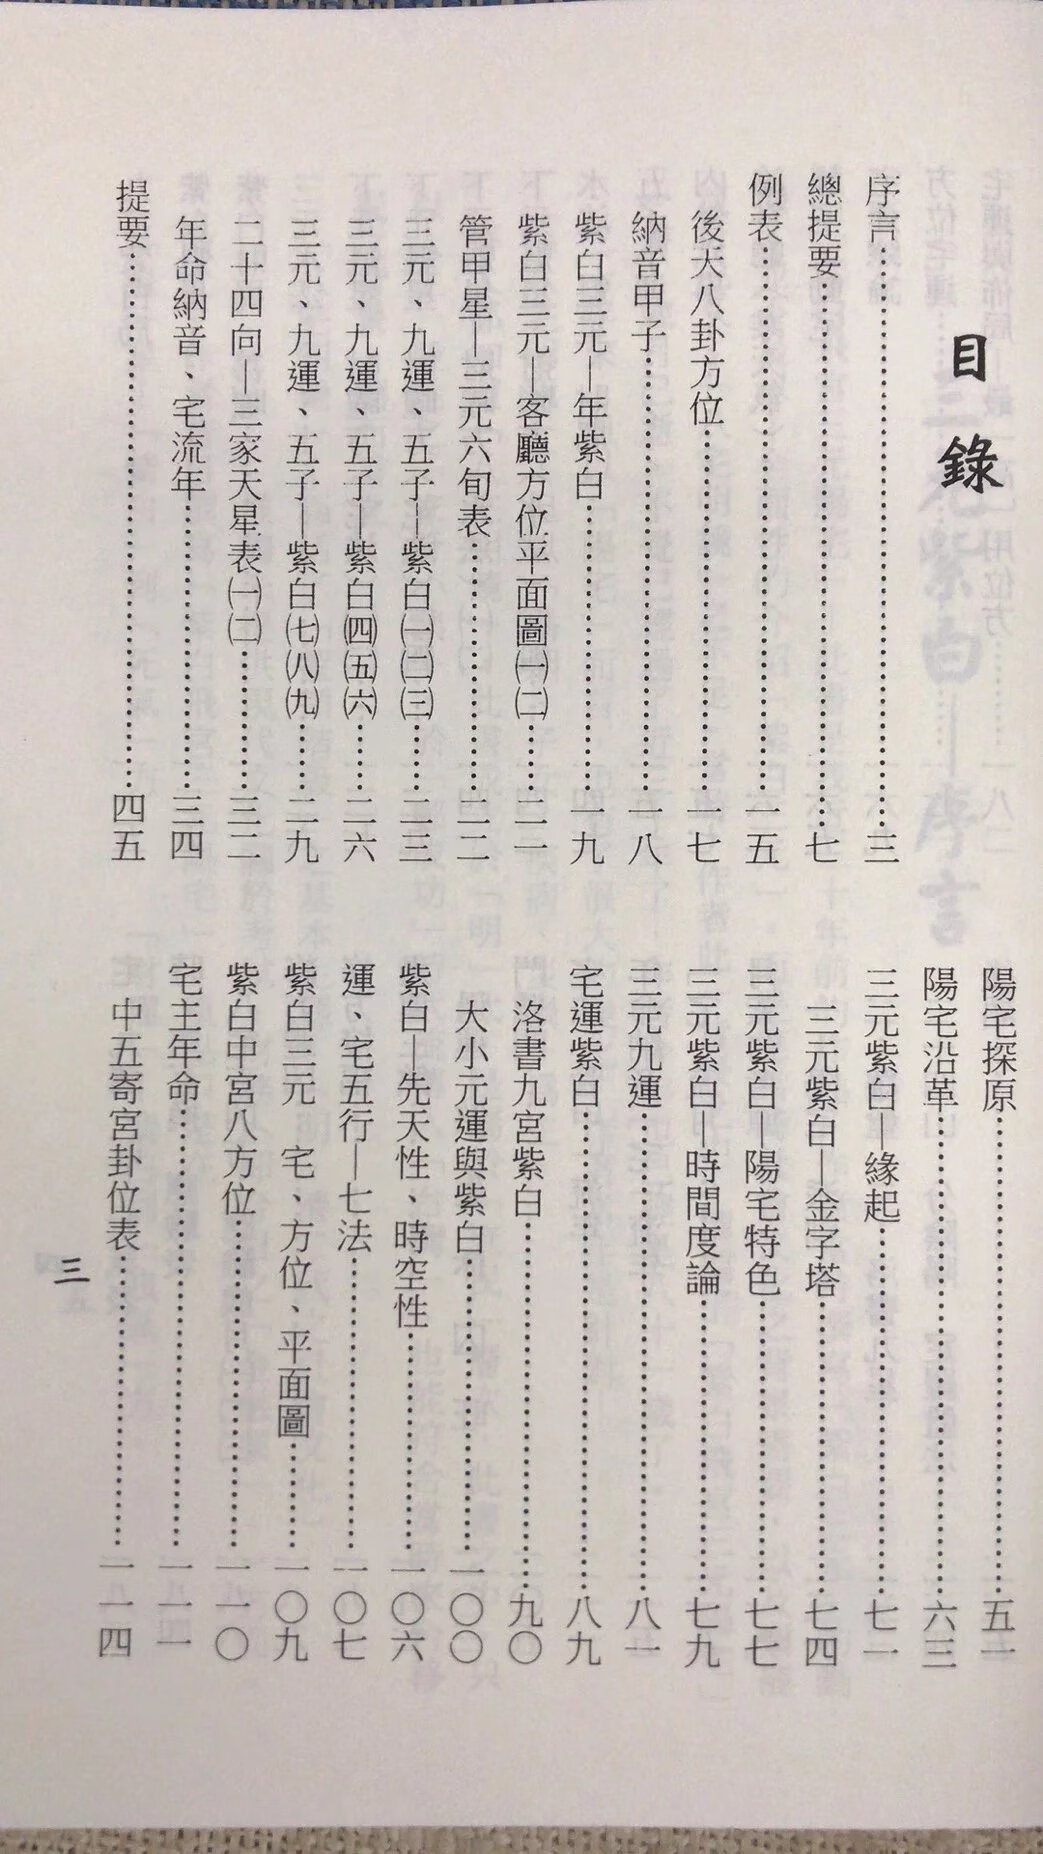 目錄
序言……………三
總提要……………七
例表……………一五
後天八卦方位……………一七
納音甲子……………一八
紫白三元—年紫白……………一九
紫白三元—客廳方位平面圖㈠㈡……………二一
管甲星—三元六旬表……………二二
三元、九運、五子—紫白㈠㈡㈢……………二三
三元、九運、五子—紫白㈣㈤㈥……………二六
三元、九運、五子—紫白㈦㈧㈨……………二九
二十四向—三家天星表㈠㈡……………三二
年命納音、宅流年……………三四
提要……………四五
陽宅探原……………五一
陽宅沿革……………六三
三元紫白—緣起……………七一
三元紫白—金字塔……………七四
三元紫白—陽宅特色……………七七
三元紫白—時間度論……………七九
三元九運……………八一
宅運紫白……………八九
洛書九宮紫白……………九〇
大小元運與紫白……………一〇〇
紫白—先天性、時空性……………一〇六
運、宅五行—七法……………一〇七
紫白三元　宅、方位、平面圖……………一〇九
紫白中宮八方位……………一一〇
宅主年命……………一一一
中五寄宮卦位表……………一一四
三